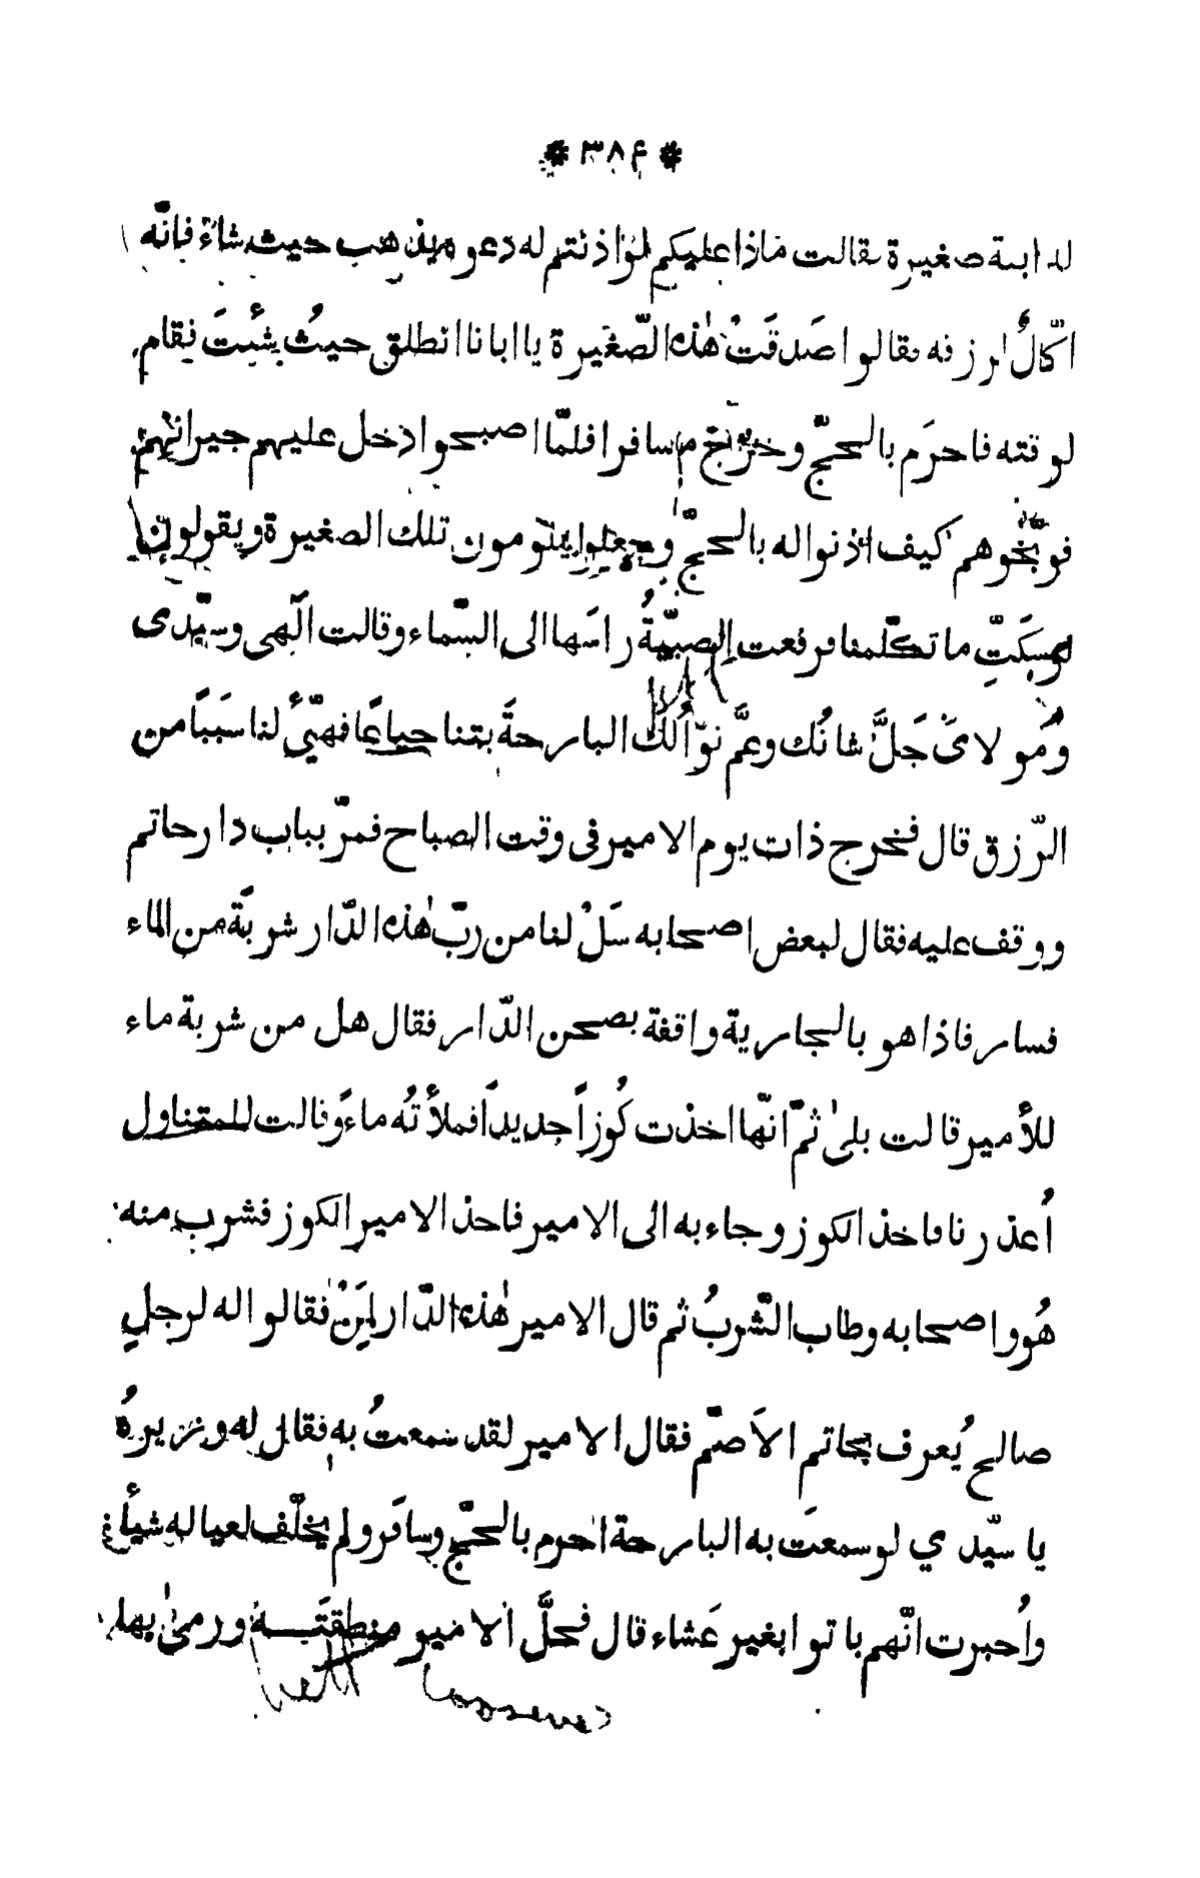 * ٣٨۴ *
له ابنة صغيرة فقالت ماذا عليكم لو اذنتم له دعوه يذهب حيث شاءَ فانّه
اكّالٌ لرزقه فقالوا صَدقَتْ هٰذه الصّغيرة يا ابانا انطلق حيثُ شئتَ فقام
لوقته فاحرَم بالحجّ وخرج مسافرا فلمّا اصبحوا دخل عليهم جيرانهم
فوبّخوهم كيف اذنوا له بالحجّ وجعلوا يلومون تلك الصغيرة ويقولون
لوسكَتِّ ما تكلّمنا فرفعت الصبيّةُ راسَها الى السّماء وقالت الٓهى وسيّدى
ومَولاىَ جَلَّ شانُك وعمَّ نوّالُك البارحةَ بتنا جياعًا فهيّئ لنا سَببًا من
الرّزق قال فخرج ذات يوم الامير فى وقت الصباح فمرّ بباب دار حاتم
ووقف عليه فقال لبعض اصحابه سَلْ لنا من ربّ هٰذه الدّار شربَةً من الماء
فسار فاذا هو بالجارية واقفة بصحن الدّار فقال هل من شربة ماء
للأمير قالت بلىٰ ثمّ انّها اخذت كُوزاً جديداً فملأتُه ماءً وقالت للمتناول
اُعذرنا فاخذ الكوز وجاء به الى الامير فاخذ الامير الكوز فشرب منه
هُو واصحابه وطاب الشّربُ ثم قال الامير هٰذه الدّار لمَنْ فقالوا له لرجلٍ
صالح يُعرف بحاتم الاَصمّ فقال الامير لقد سمعتُ به فقال له وزيرهُ
يا سيّدي لو سمعتَ به البارحة احرم بالحجّ وسافَر ولم يخلّف لعياله شيأً
واُخبرت انّهم باتوا بغير عَشاء قال فحلَّ الامير منطقتَه ورمىٰ بها